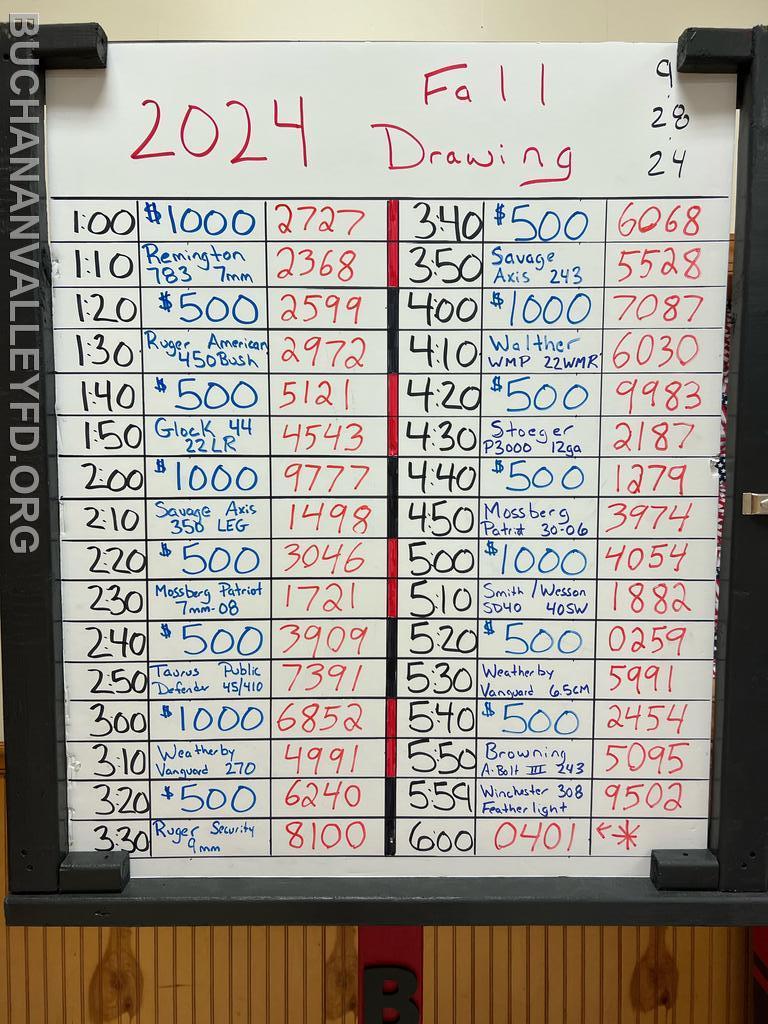 BUCHANANVALLEYFD.ORG
2024 Fall Drawing
9
28
24
1:00 $1000 2727
1:10 Remington 783 7mm 2368
1:20 $500 2599
1:30 Ruger American 450Bush 2972
1:40 $500 5121
1:50 Glock 44 22LR 4543
2:00 $1000 9777
2:10 Savage Axis 350 LEG 1498
2:20 $500 3046
2:30 Mossberg Patriot 7mm-08 1721
2:40 $500 3909
2:50 Taurus Public Defender 45/410 7391
3:00 $1000 6852
3:10 Weatherby Vanguard 270 4991
3:20 $500 6240
3:30 Ruger Security 9mm 8100
3:40 $500 6068
3:50 Savage Axis 243 5528
4:00 $1000 7087
4:10 Walther WMP 22WMR 6030
4:20 $500 9983
4:30 Stoeger P3000 12ga 2187
4:40 $500 1279
4:50 Mossberg Patriot 30-06 3974
5:00 $1000 4054
5:10 Smith/Wesson SD40 40SW 1882
5:20 $500 0259
5:30 Weatherby Vanguard 6.5CM 5991
5:40 $500 2454
5:50 Browning A-Bolt III 243 5095
5:59 Winchester 308 Featherlight 9502
6:00 0401 ←*
B